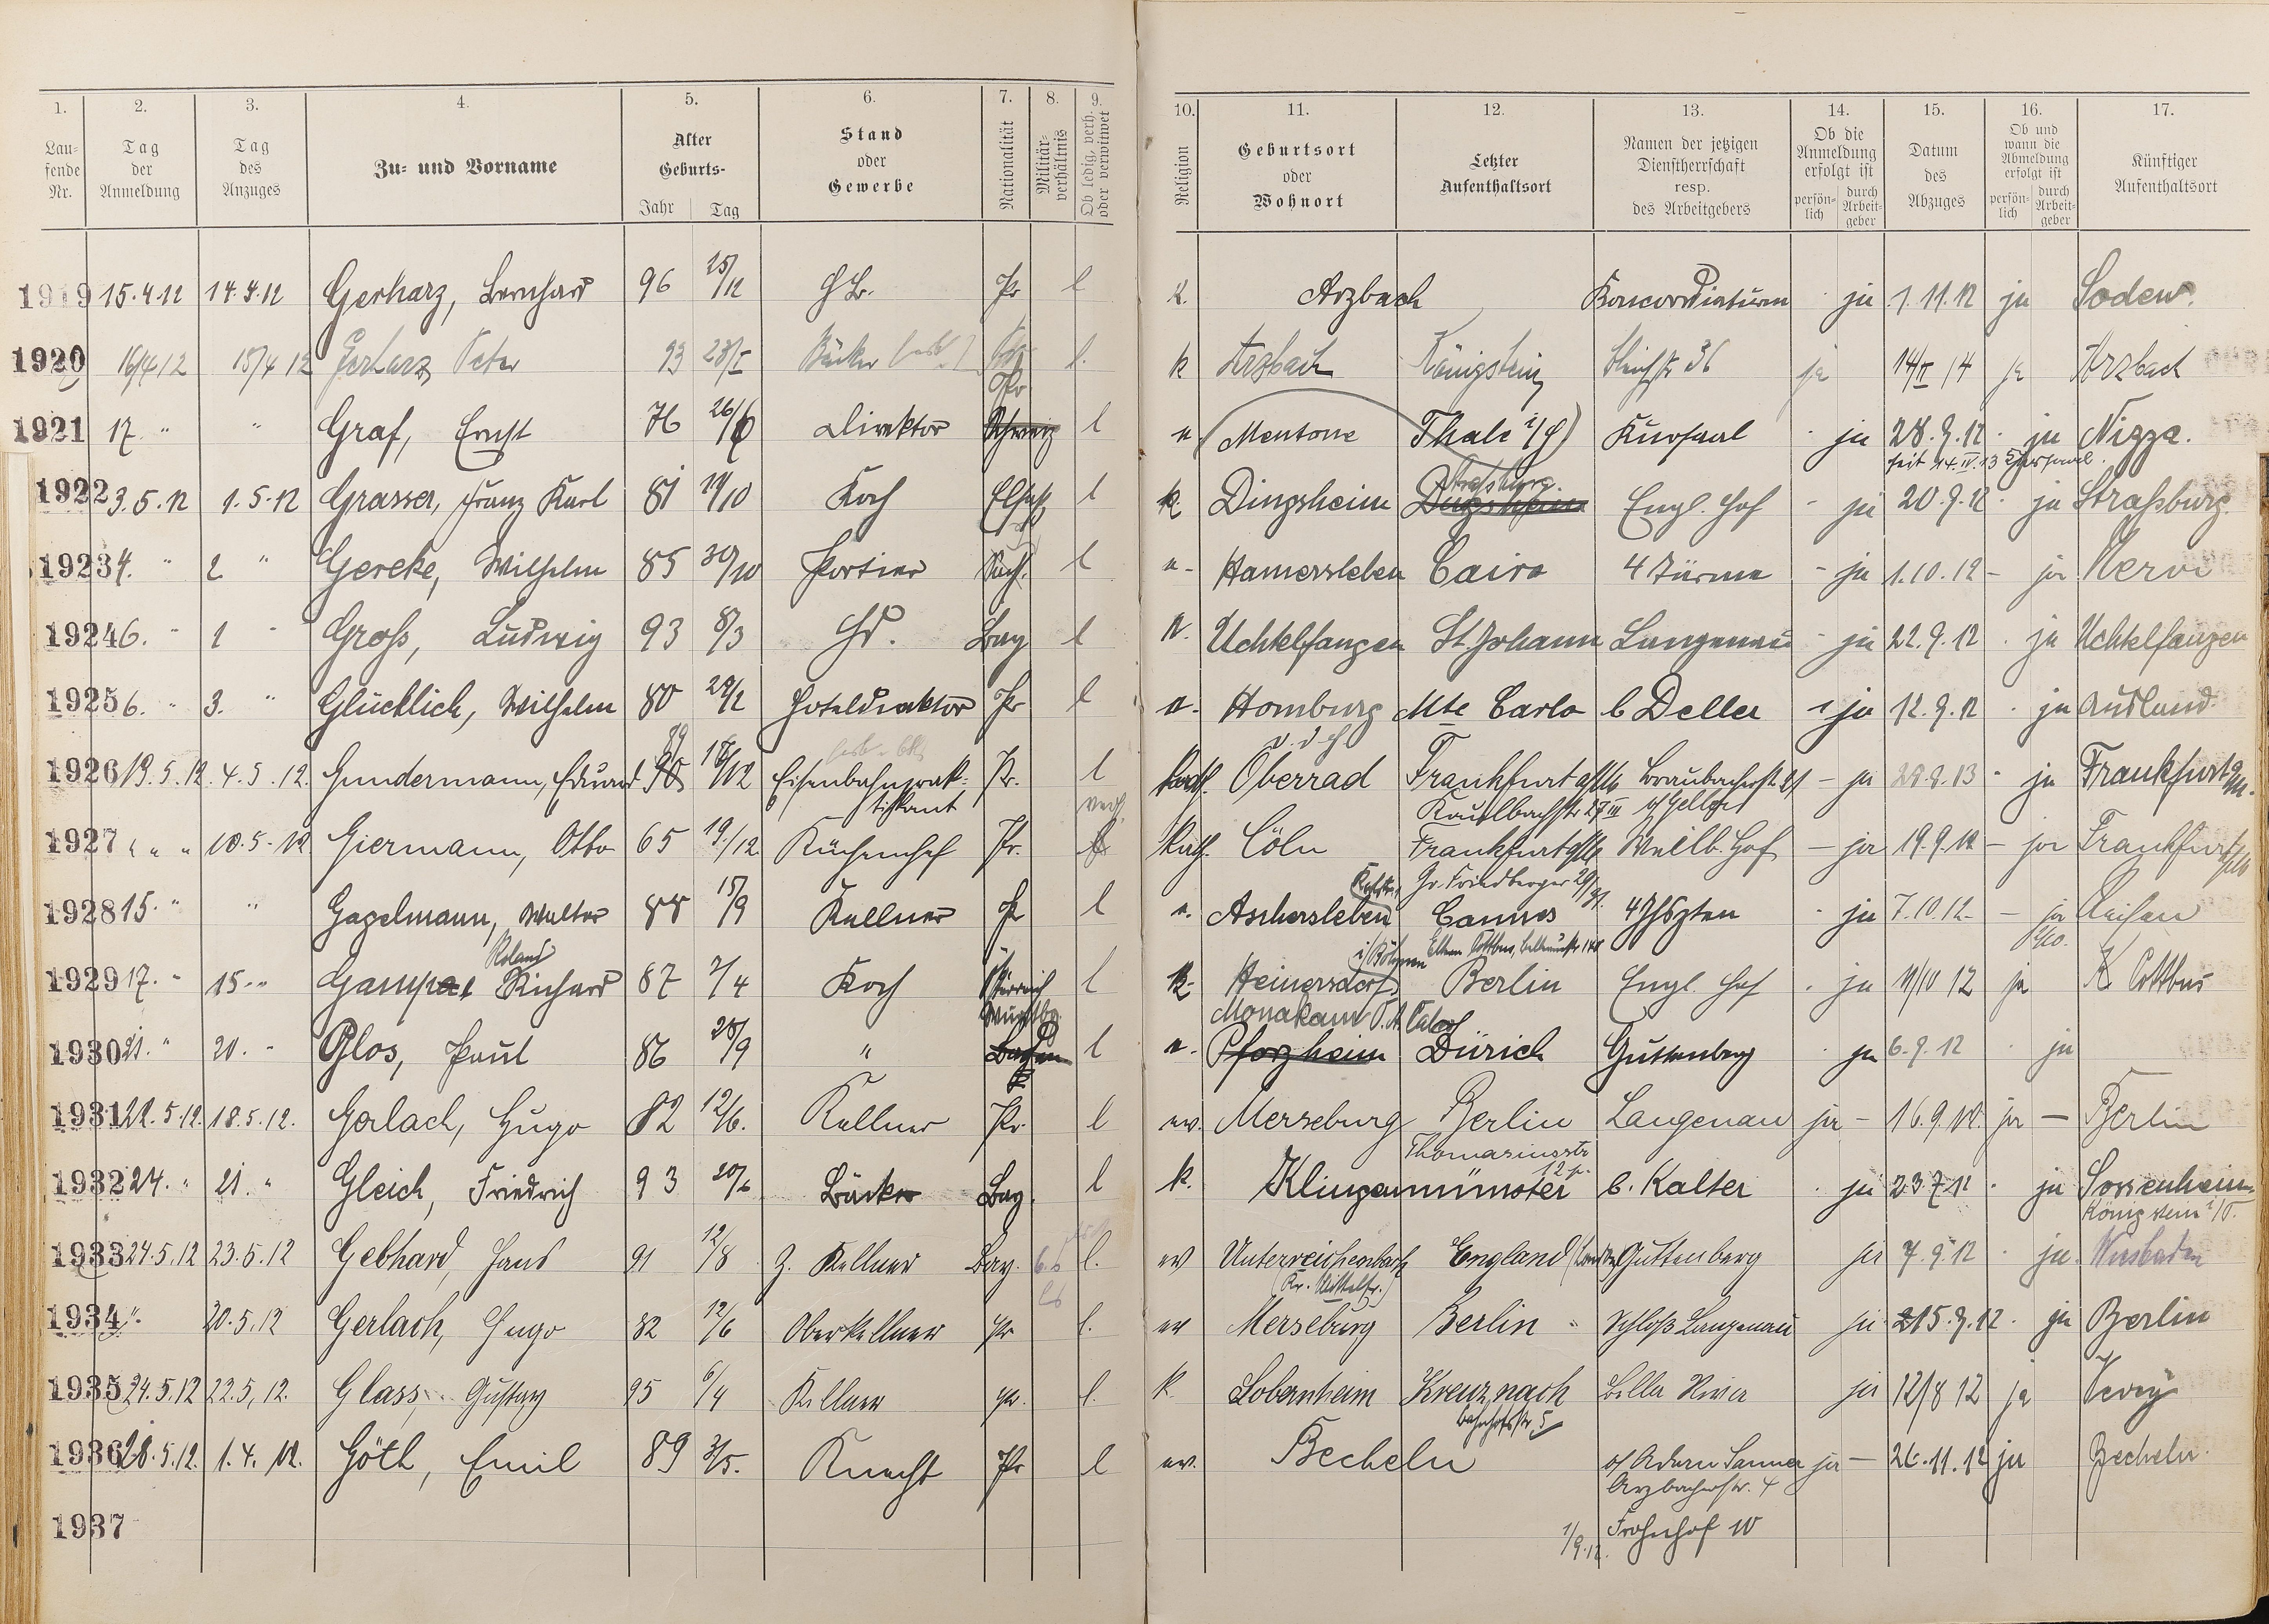 1. 2. 3. 4. 5. 6. 7. 8. 9. 10. 11. 12. 13. 14. 15. 16. 17.
Laufende Nr. Tag der Anmeldung Tag des Anzuges Zu- und Vorname Alter Geburts- Jahr Tag Stand oder Gewerbe Nationalität Militärverhältnis Ob ledig, verh. oder verwitwet Religion Geburtsort oder Wohnort Letzter Aufenthaltsort Namen der jetzigen Dienstherrschaft resp. des Arbeitgebers Ob die Anmeldung erfolgt ist persönlich durch Arbeitgeber Datum des Abzuges Ob und wann die Abmeldung erfolgt ist persönlich durch Arbeitgeber Künftiger Aufenthaltsort
1919 15.4.12 14.4.12 Gerharz, Bernhard 96 25/12 Pr l k. Arzbach Konkordiaturm ja 1.11.12 ja Soden
1920 16/4 12 15/4 12 Gerharz Peter 93 23/I Bäcker Pr l. k Arzbach Königstein 36 ja 14/II 14 ja Arzbach
1921 17. " " Graf, Ernst 76 26/6 Direktor Schweiz Pr l (Mentone Thale i/H) Kursaal - ja 28.9.12 - ja Nizza.
seit 14.IV.13 Kursaal.
1922 3.5.12 1.5.12 Grasser, Franz Karl 81 19/10 Koch Elsaß l k Dingsheim Dingsheim Straßburg. Engl. Hof - ja 20.9.12 - ja Straßburg.
1923 4. " 2 " Gereke, Wilhelm 85 30/10 Portier l Hamersleben Cairo 4 Türme - ja 1.10.12 - ja Nervi
1924 6. " 1 " Groß, Ludwig 93 8/3 Hd. Bay l Uchtelfangen St. Johann Langenau - ja 22.9.12 - ja Uchtelfangen
1925 6. " 3. " Glücklich, Wilhelm 80 29/2 Hoteldirektor Pr l Homburg v.d.H Mte Carlo b Deller ja 12.9.12 - ja Ausland
1926 19.5.12. 4.5.12. Gundermann, Eduard Eisenbahnpraktikant Pr. l kath. Oberrad Frankfurt a/M Braubacherstr. - ja 28.8.13 - ja Frankfurt a/M.
1927 " " " 10.5.12 Giermann, Otto 65 19/12. Küchenchef Pr. verh. kath. Cöln Kaulbachstr 27 III Frankfurt a/M Weilb. Hof - ja 19.9.12 - ja Frankfurt a/M
1928 15. " " Gagelmann, Walter 88 15/9 Kellner Pr l Aschersleben Gr. Friedberger 29/31 Cannes 4 Jhszten - ja 7.10.12 - ja Reisen
1929 17. " 15. " Roland Richard 87 7/4 Koch Österreich l k. Heinersdorf i/Böhmen Berlin Engl. Hof - ja 11/10 12 ja K Cottbus
1930 21. " 20. " Glos, Paul 86 28/9 " Baden Württbg. l Pforzheim Monakam O.A Calw Zürich Guttenberg - ja 6.9.12 - ja
1931 22.5.12. 18.5.12. Gerlach, Hugo 82 12/6. Kellner Pr. l ev. Merseburg Berlin Thomasiusstr 12 p. Langenau ja - 16.9.12. ja - Berlin
1932 24. " 21. " Gleich, Friedrich 93 20/6 Bäcker Bay. l k. Klingenmünster b. Kalter - ja 23.7.12 - ja Sossenheim
Königstein i/T.
1933 24.5.12 23.5.12 Gebhard, Hans 91 12/8 Z. Kellner Bay. l. ev Unterreichenbach (Kr. Mittelfr.) England (London) Guttenberg ja 7.9.12 - ja Wiesbaden
1934 " 20.5.12 Gerlach, Hugo 82 12/6 Oberkellner Pr l. ev Merseburg Berlin " Schloß Langenau ja 15.9.12. ja Berlin
1935 24.5.12 22.5.12. Glass, Gustav 95 6/4 Kellner pr. l. k Sobernheim Kreuznach Bahnhofstr. 5 Villa ja 12/8 12 ja Vevey
1936 28.5.12. 1.4.12. Göth, Emil 89 3/5. Knecht Pr l ev. Becheln Adam Sanner Arzbacherstr. 4 ja - 26.11.12 ja Becheln
1937
1/9.12. Frohnhof 10